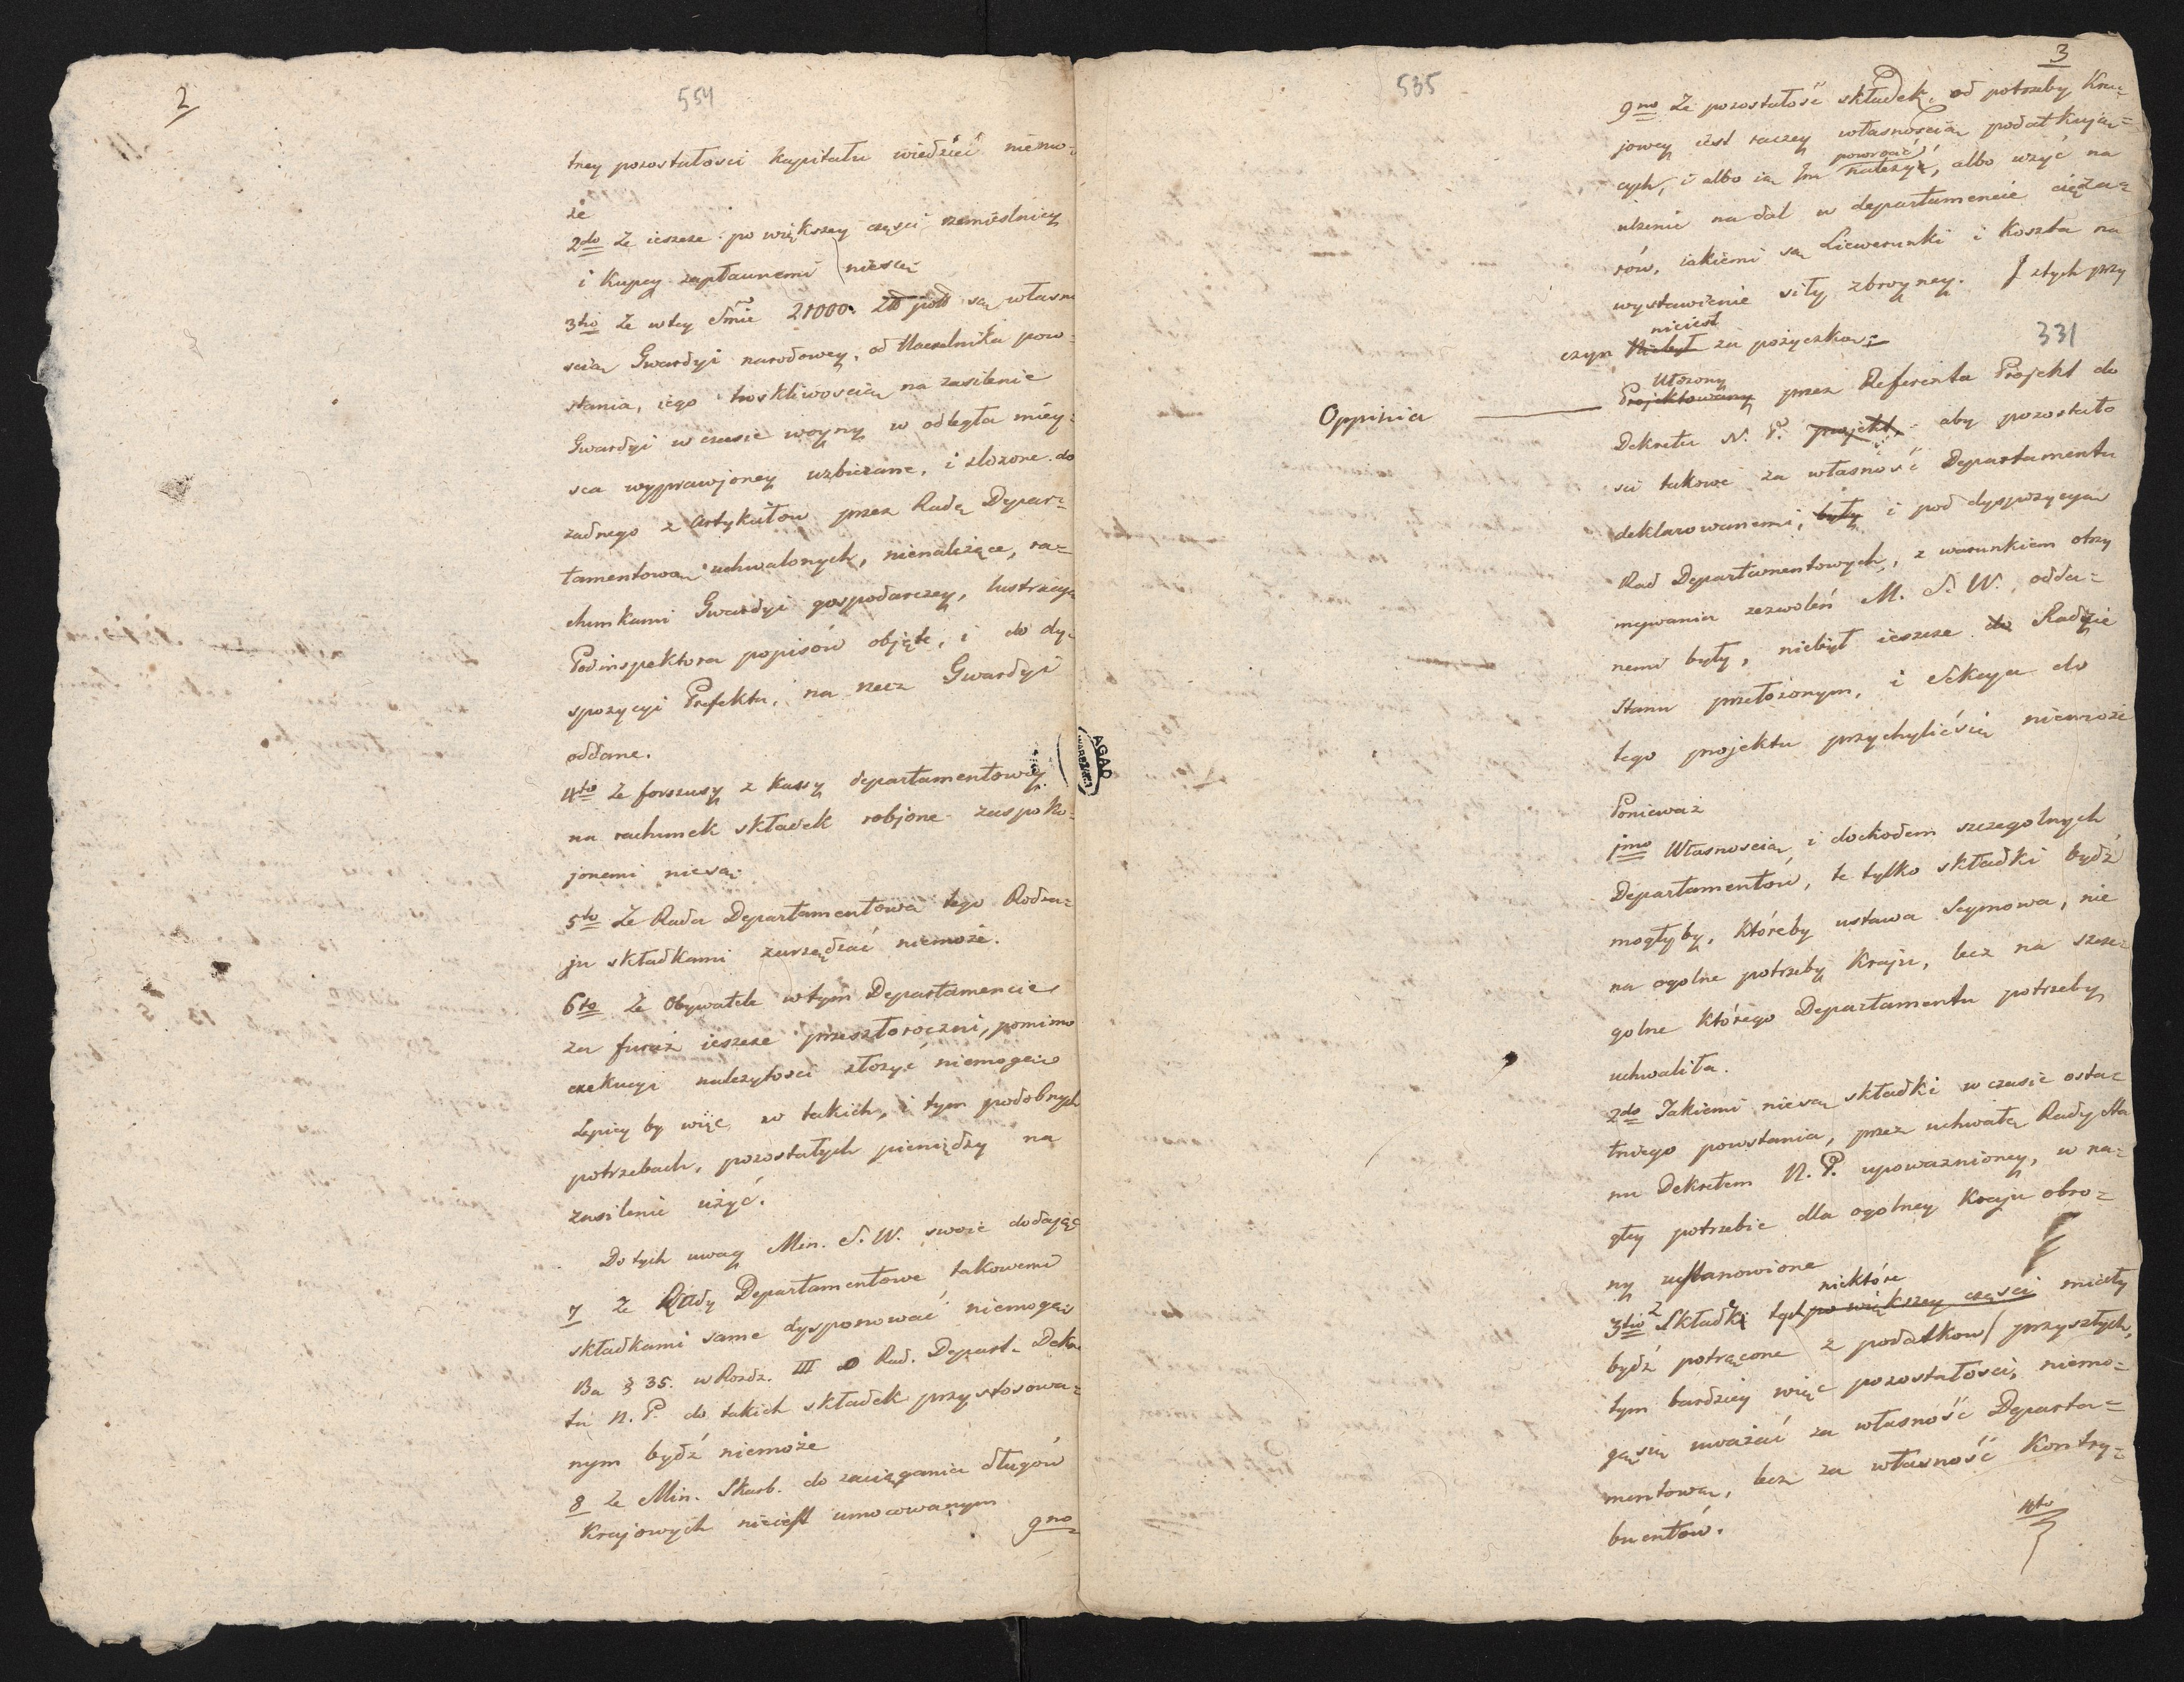 2
554
tney pozostałosci kapitału wiedzieć niemo=
że
2do Że ieszcze po większey części rzemieslnicy
i Kupcy zapłaunemi niesą
3tio Że w tey Smie 21000 Złł poll są własno
scią Gwardyi narodowey, od Naczelnika pow=
stania, iego troskliwoscią na zasilenie
Gwardyi w czasie woyny w odległa miey=
sca wyprawjoney uzbierane, i złozone do
zadnego z Artykułow przez Radę Depar=
tamentową uchwalonych, nienależące, ra=
chunkami Gwardyi gospodarczey, lustracyą
Podinspektora popisów objęte, i do dy=
spozycyi Prefekta, na rzecz Gwardyi
oddane.
4to Że forszusy z kassy departamentowey
na rachunek składek robjone zaspoko=
jonemi niesą
5to Że Rada Departamentowa tego Rodza=
ju składkami zarządzać niemoże.
6to Że Obywatele w tym Departamencie
za furaż ieszcze przeszłoroczni, pomimo
exekucyi należytosci złożyć niemogą
Lepiey by więc w takich, i tym podobnych
potrzebach, pozostałych pieniędzy na
zasilenie użyć.
Do tych uwag Min. S. W. swoie dodając
7 Że Rady Departamentowe takowemi
składkami same dysponować niemogą
Ba § 35. w Rozdz. III o Rad. Depart. Dekre
tu N. P. do takich składek przystosowa=
nym bydź niemoże
8 Że Min. Skarb. do zaciągania długów
Krajowych nieiest umocowanym
9no
3
535
9no Że pozostałość składek, od potrzeby Kra=
jowey iest raczey własnoscią podatkują=
powrócić
cych, i albo ią Im należy, albo użyć na
ulżenie nadal w departamencie cięża=
rów, iakiemi są Liewerunki i Koszta na
wystawienie siły zbroyney. z tych przy
nieiest
czyn Niebył za pożyczką;
331
Ułożony
Oppinia
Projektowany przez Referenta Projekt do
Dekretu N. P. projekt, aby pozostało
sci takowe za własność Departamentu
deklarowanemi, były i pod dyspozycyą
Rad Departamentowych, z warunkiem otrzy
mywania zezwoleń M. S. W. odda=
nemi były, niebył ieszcze do Radzie
Stanu przełożonym, i Sekcya do
tego projektu przychylićsię niemoże
Ponieważ
jmo Własnoscią i dochodem szczegolnych
Departamentów, te tylko składki bydź
mogłyby, któreby ustawa Seymowa, nie
na ogolne potrzeby Kraju, lecz na szcze=
golne którego Departamentu potrzeby
uchwaliła.
2do Takiemi niesą składki w czasie osta=
tniego powstania, przez uchwałę Rady Sta
nu Dekretem N. P. upoważnioney, w na=
głey potrzebie dla ogolney Kraju obro=
ny ustanowione
niektóre
3tio z Składek tych po większey części miały
bydź potrącone z podatkow przyszłych,
tym bardziey więc pozostałosci, niemo=
gąsię uważać za własność Departa=
mentową, lecz za własność Kontry=
buentów.
4to
AGAD
WARSZAWA